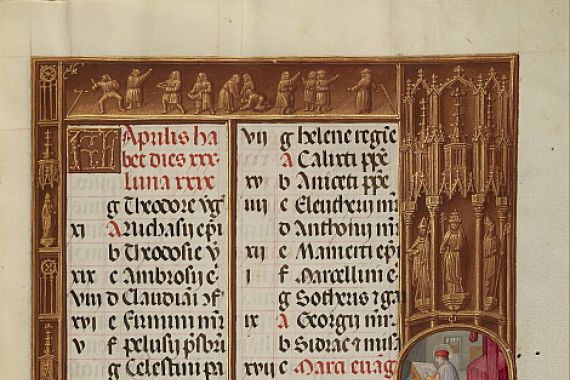 KL Aprilis ha
bet dies xxx
luna xxix
g Theodore v̄ḡ
xi A Nichasii ep̄i
b Theodosie v̄
xix c Ambrosij e
viii d Claudiāi
xvi e Firmini m̄r̄
v f pelusij p̄sbr̄i
g Celestini pa
vii g helene regīe
A Calixti p̄p̄e
xv b Aniceti p̄p̄e
iiii c Eleutherii m̄r̄
d Anthonij m̄r̄
xii e Mamerti ep̄i
i f Marcellini e
g Sotheris
ix A Georgij m̄r̄
b Sidrac
xvii c Marci euāg